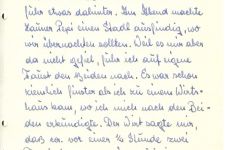 führ etwas dahinter. Am Abend machte
Hauner Pepi einen Stadl ausfindig, wo
wir übernachten sollten. Weil es mir aber
da nicht gefiel, fuhr ich auf eigne
Faust den Beiden nach. Es war schon
ziemlich finster als ich zu einem Wirts-
haus kam, wo ich mich nach den Bei-
den erkundigte. Der Wirt sagte mir,
daß ca. vor einer 1/4 Stunde zwei